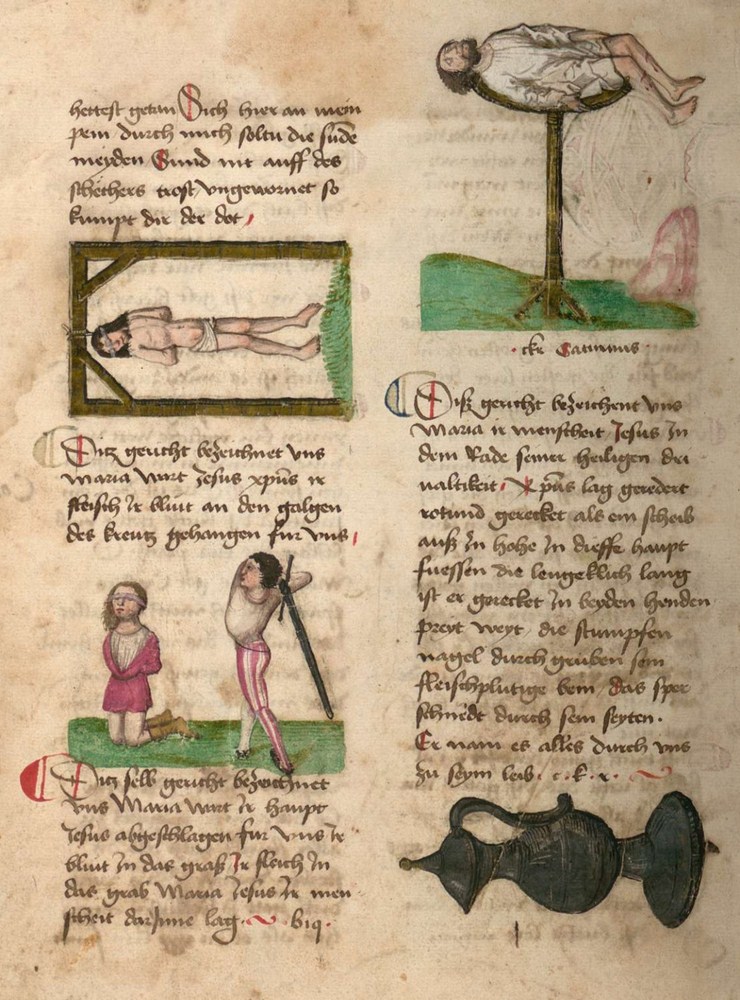 hettest getan Sich hier an mein
pein durch mich soltu die sunde
meyden Sund nit auff des
schechers trost vngewornet so
kumpt dir der dot
Ditz gericht bezeichnet vns
maria wart Jesus xpus ir
fleisch Ir bluut an den galgen
des kreutz gehangen fur vns
Ditz selb gericht bezeichnet
vns Maria wart Ir haupt
Jesus abgeschlagen fur vns Ir
bluut Jn das graß Ir fleich Jn
das grab Maria Jesus Ir men
scheit dar Jnne lag
Saturnus
Diß gericht bezeichent vns
Maria ir menscheit Jesus Jn
dem Rade seiner heiligen dri
ualtikeit xpus lag geredert
rotund gerecket als ein scheib
auß Jn hohe Jn dieffe haupt
fuessen die lengeklich lang
ist er gerecket Jn beyden henden
preyt weyt die stumpfen
nagel durch gruben sein
fleischplutige bein das sper
schneidt durch sein seyten
Er nam es alles durch vns
zu seym leib c. k. r.